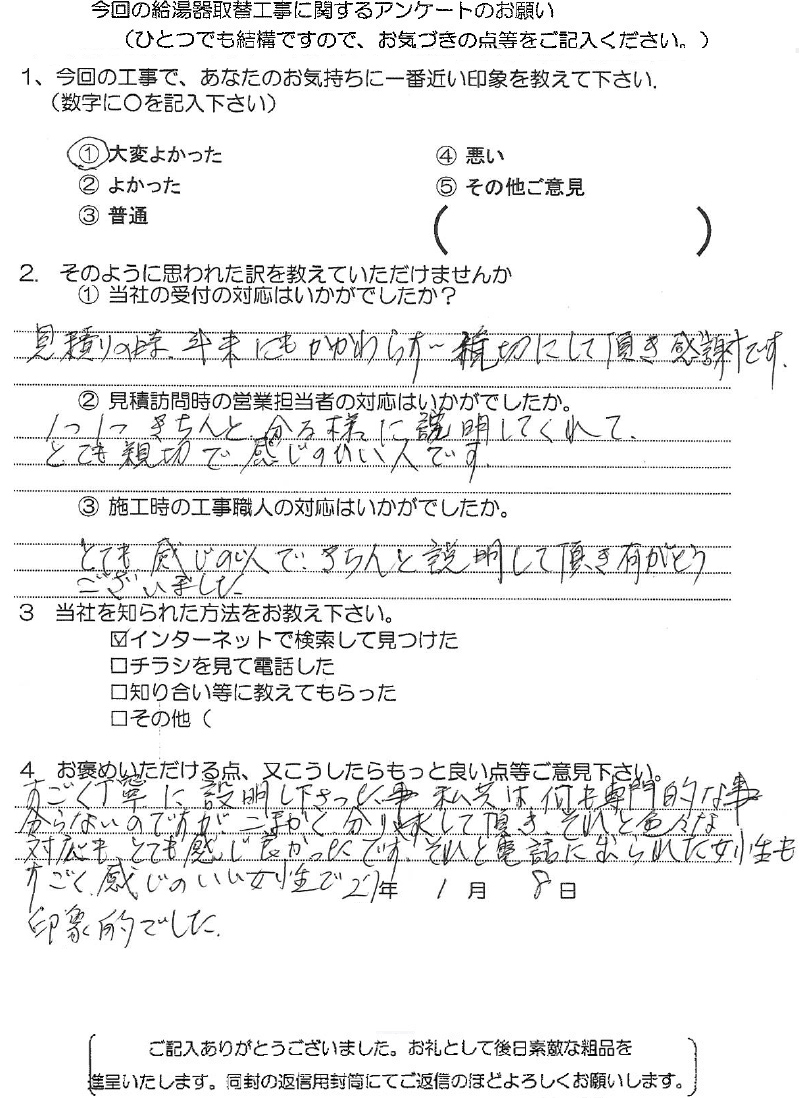 今回の給湯器取替工事に関するアンケートのお願い
（ひとつでも結構ですので、お気づきの点等をご記入ください。）
1、今回の工事で、あなたのお気持ちに一番近い印象を教えて下さい.
（数字に○を記入下さい）
① 大変よかった
② よかった
③ 普通
④ 悪い
⑤ その他ご意見
（　）
2. そのように思われた訳を教えていただけませんか
① 当社の受付の対応はいかがでしたか？
見積りの時、年末にもかかわらず 親切にして頂き感謝です.
② 見積訪問時の営業担当者の対応はいかがでしたか。
1つ1つきちんと 分る様に説明してくれて、
とても親切で感じのいい人です.
③ 施工時の工事職人の対応はいかがでしたか。
とても感じの人で、きちんと説明して頂き有がとう
ございました.
3 当社を知られた方法をお教え下さい。
☑インターネットで検索して見つけた
□チラシを見て電話した
□知り合い等に教えてもらった
□その他（
4 お褒めいただける点、又こうしたらもっと良い点等ご意見下さい。
すごく丁寧に説明し下さった事 私共は何も専門的な事
分らないのですが 分り して頂き、それと色々な
対応も、とても感じ良かったです. それと電話に出られた女性も
すごく、感じのいい女性で
27年 1月 8日
印象的でした.
ご記入ありがとうございました。お礼として後日素敵な粗品を
進呈いたします。同封の返信用封筒にてご返信のほどよろしくお願いします。